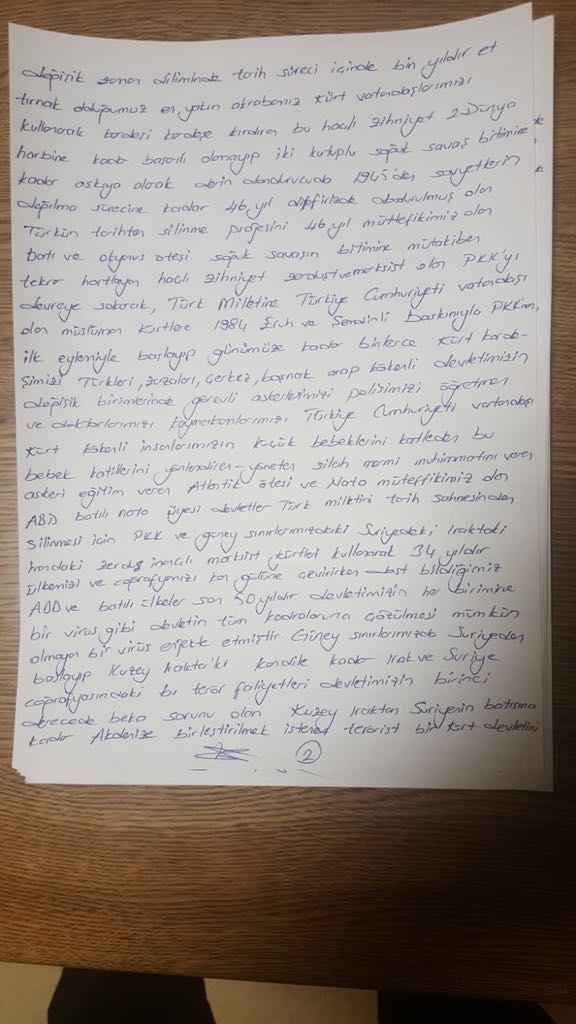 değişik zaman diliminde tarih süreci içinde bin yıldır et
tırnak olduğumuz en yakın akrabamız Kürt vatandaşlarımızı
kullanarak kardeşi kardeşe kırdıran bu haçlı zihniyet 2. Dünya
harbine kadar başarılı olamayıp iki kutuplu soğuk savaş bitimine
kadar askıya alarak derin dondurucuda 1945'den sovyetlerin
dağılma sürecine kadar 46 yıl dipfirizde dondurulmuş olan
Türkün tarihten silinme projesini 46 yıl müttefikimiz olan
batı ve okyanus ötesi soğuk savaşın bitimine mütakiben
tekrar hortlayan haçlı zihniyet zerdüşt ve marksist olan PKK'yı
devreye sokarak, Türk Milletine Türkiye Cumhuriyeti vatandaşı
olan müslüman Kürtlere 1984 Eruh ve Şemdinli baskınıyla PKK'nın,
ilk eylemiyle başlayıp günümüze kadar binlerce Kürt karde-
şimizi Türkleri, zazaları, çerkez, boşnak arap kökenli devletimizin
değişik birimlerinde görevli askerlerimizi polisimizi öğretmen
ve doktorlarımızı kaymakamlarımızı, Türkiye Cumhuriyeti vatandaşı
Kürt kökenli insanlarımızın küçük bebeklerini katleden bu
bebek katillerini yönlendiren-yöneten silah mermi mühimmatını veren
askeri eğitim veren Atlantik ötesi ve Nato müteffikimiz olan
ABD batılı nato üyesi devletler Türk milletini tarih sahnesinden
silinmesi için PKK ve güney sınırlarımızdaki Suriyedeki Iraktaki
irandaki zerdüş inançlı marksist kürtleri kullanarak 34 yıldır
ülkemizi ve coğrafyamızı kan gölüne çevirirken dost bildiğimiz
ABD ve batılı ülkeler son 50 yıldır devletimizin her birimine
bir virüs gibi devletin tüm kadrolarına çözülmesi mümkün
olmayan bir virüs enfekte etmiştir. Güney sınırlarımızda Suriyeden
başlayıp Kuzey Irakta'ki kandile kadar Irak ve Suriye
coğrafyasındaki bu terör faliyetleri devletimizin birinci
derecede beka sorunu olan Kuzey Iraktan Suriyenin batısına
kadar Akdenize birleştirilmek istenen terörist bir Kürt devletini
2